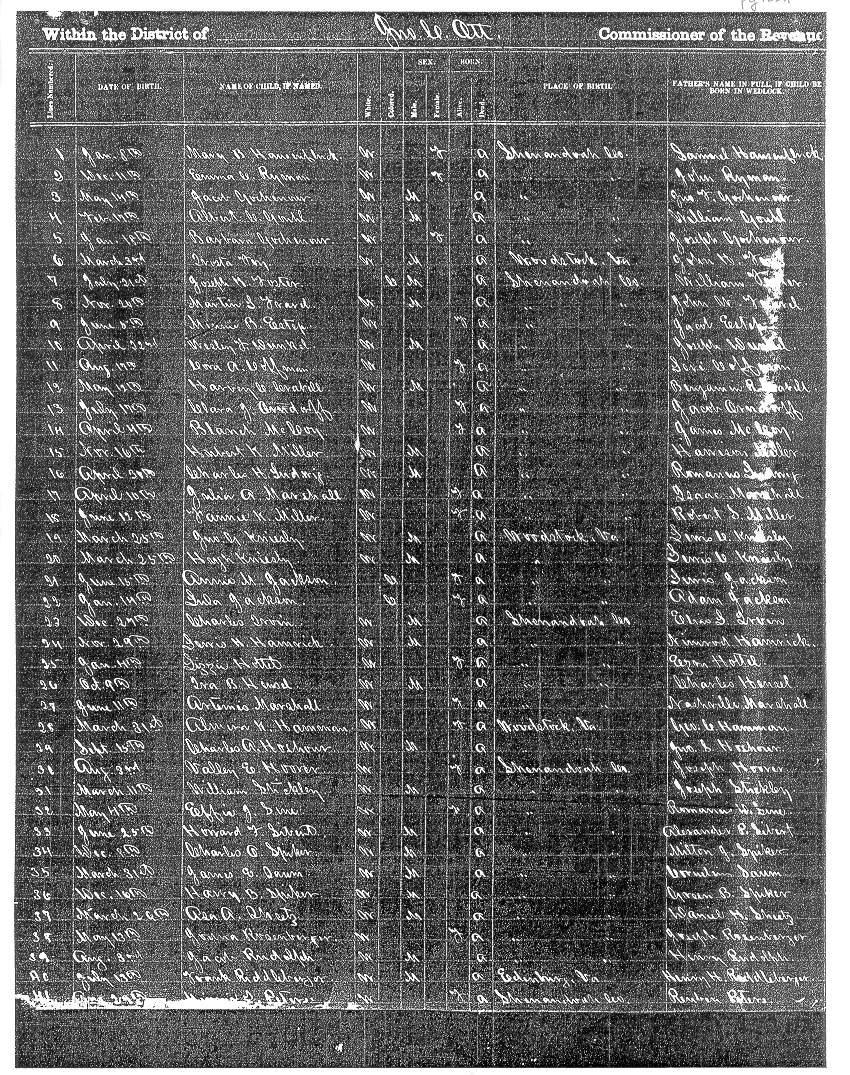 Within the District of Jno. C. Ott. Commissioner of the Revenue
SEX. BORN.
Lines Numbered. DATE OF BIRTH. NAME OF CHILD, IF NAMED. White. Colored. Male. Female. Alive. Dead. PLACE OF BIRTH FATHER'S NAME IN FULL, IF CHILD BE BORN IN WEDLOCK.
1 Jan. 8th Mary B W F a Shenandoah Co. Samuel
2 Dec. 11th Emma C Ryman W F a " " John Ryman
3 May 14th Jacob Gochenour W M a " " Jno. Gochenour
4 Feb. Albert Gould W M a " " William Gould
5 Jan. 18th Barbara Gochenour W F a " " Joseph Gochenour
6 March 3rd W M a Woodstock, Va John
7 July 21st Joseph H. Foster C M a Shenandoah Co. William
8 Nov. 24th Martin W M a " " John W.
9 June 5th Minnie B. Estep W F a " " Jacob Estep
10 April 22nd Wesley W M a " " Joseph
11 Aug. Cora A. Coffman W F a " " Levi Coffman
12 May 12th Harvey C. Crabill W M a " " Benjamin Crabill
13 July 17th Clara J. Orndorff W F a " " Jacob Orndorff
14 April 4th Blanch McCoy W F a " " James McCoy
15 Nov. 16th Herbert K. Miller W M a " " Harrison Miller
16 April 20th Charles H. Ludwig W M a " " Romanus Ludwig
17 April 10th Julia A Marshall W F a " " Isaac Marshall
18 June 12th Fannie K. Miller W F a " " Robert S. Miller
19 March 25th Jno. Kniesly W M a Woodstock, Va Lewis C Kniesly
20 March 25th Hugh Kniesly W M a " " Lewis C Kniesly
21 June 15th Annie M. Jackson C F a " " Lewis Jackson
22 Jan. 14th Lula Jackson C F a " " Adam Jackson
23 Dec. 27th Charles Irvin W M a Shenandoah Co Irvin
24 Nov. 29th Lewis H. Hamrick W M a " " Nimrod Hamrick
25 Jan 4th Lizzie Hottel W F a " " Ezra Hottel
26 Oct. 9th Ira B. Hensel W M a " " Charles Hensel
27 June 11th Artemis Marshall W F a " " Marshall
28 March 31st Almira K. Hamman W F a Woodstock, Va. Geo. C Hamman
29 Sept. 15th Charles A. Hoshour W M a " " Jno. Hoshour
30 Aug. 3rd Walley E. Hoover W F a Shenandoah Co. Joseph Hoover
31 March 11th William Stickley W M a " " Joseph Stickley
32 May 4th Effie J. Sine W F a " " Romanus W. Sine
33 June 25th Howard F Sibert W M a " " Alexander P. Sibert
34 Dec. 8th Charles C. Spiker W M a " " Milton J. Spiker
35 March 31st James E. Saum W M a " " Cornelius Saum
36 Dec. 16th Harry B. Spiker W M a " " Green B. Spiker
37 March 26th Asa A. Sheetz W M a " " Daniel H. Sheetz
38 May 13th Rosenberger W F a " " Joseph Rosenberger
39 Aug. 3rd Jacob Rudolph W M a " " Henry Rudolph
40 July 12th Frank Riddleberger W M a Edinburg, Va Henry H. Riddleberger
41 29th Peters W F a Shenandoah Co Reuben Peters